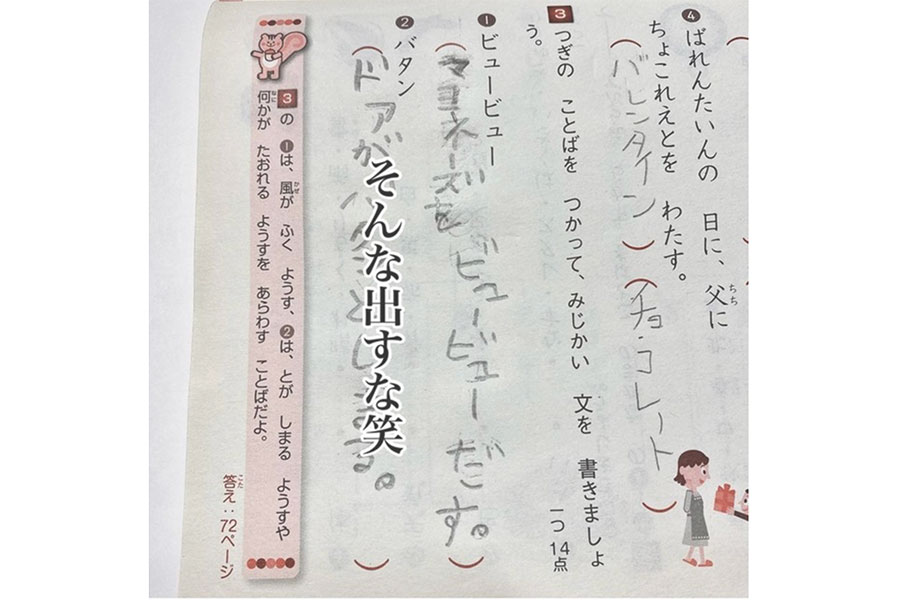 ❹ ばれんたいんの 日に、父(ちち)に
ちょこれえとを わたす。
(バレンタイン)(チョコレート)
3 つぎの ことばを つかって、みじかい 文を 書きましょ
う。 一つ14点
❶ ビュービュー
(マヨネーズを ビュービューだす。)
❷ バタン
(ドアがバタンとしまる。)
そんな出すな笑
3の ❶は、風(かぜ)が ふく ようす、❷は、とが しまる ようすや
何(なに)かが たおれる ようすを あらわす ことばだよ。
答(こた)え:72ページ